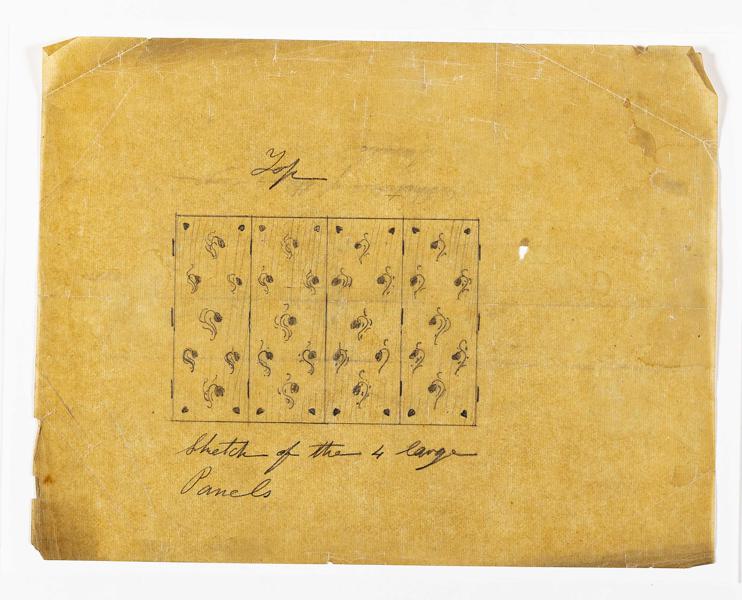 Top
Sketch of the 4 large
Panels